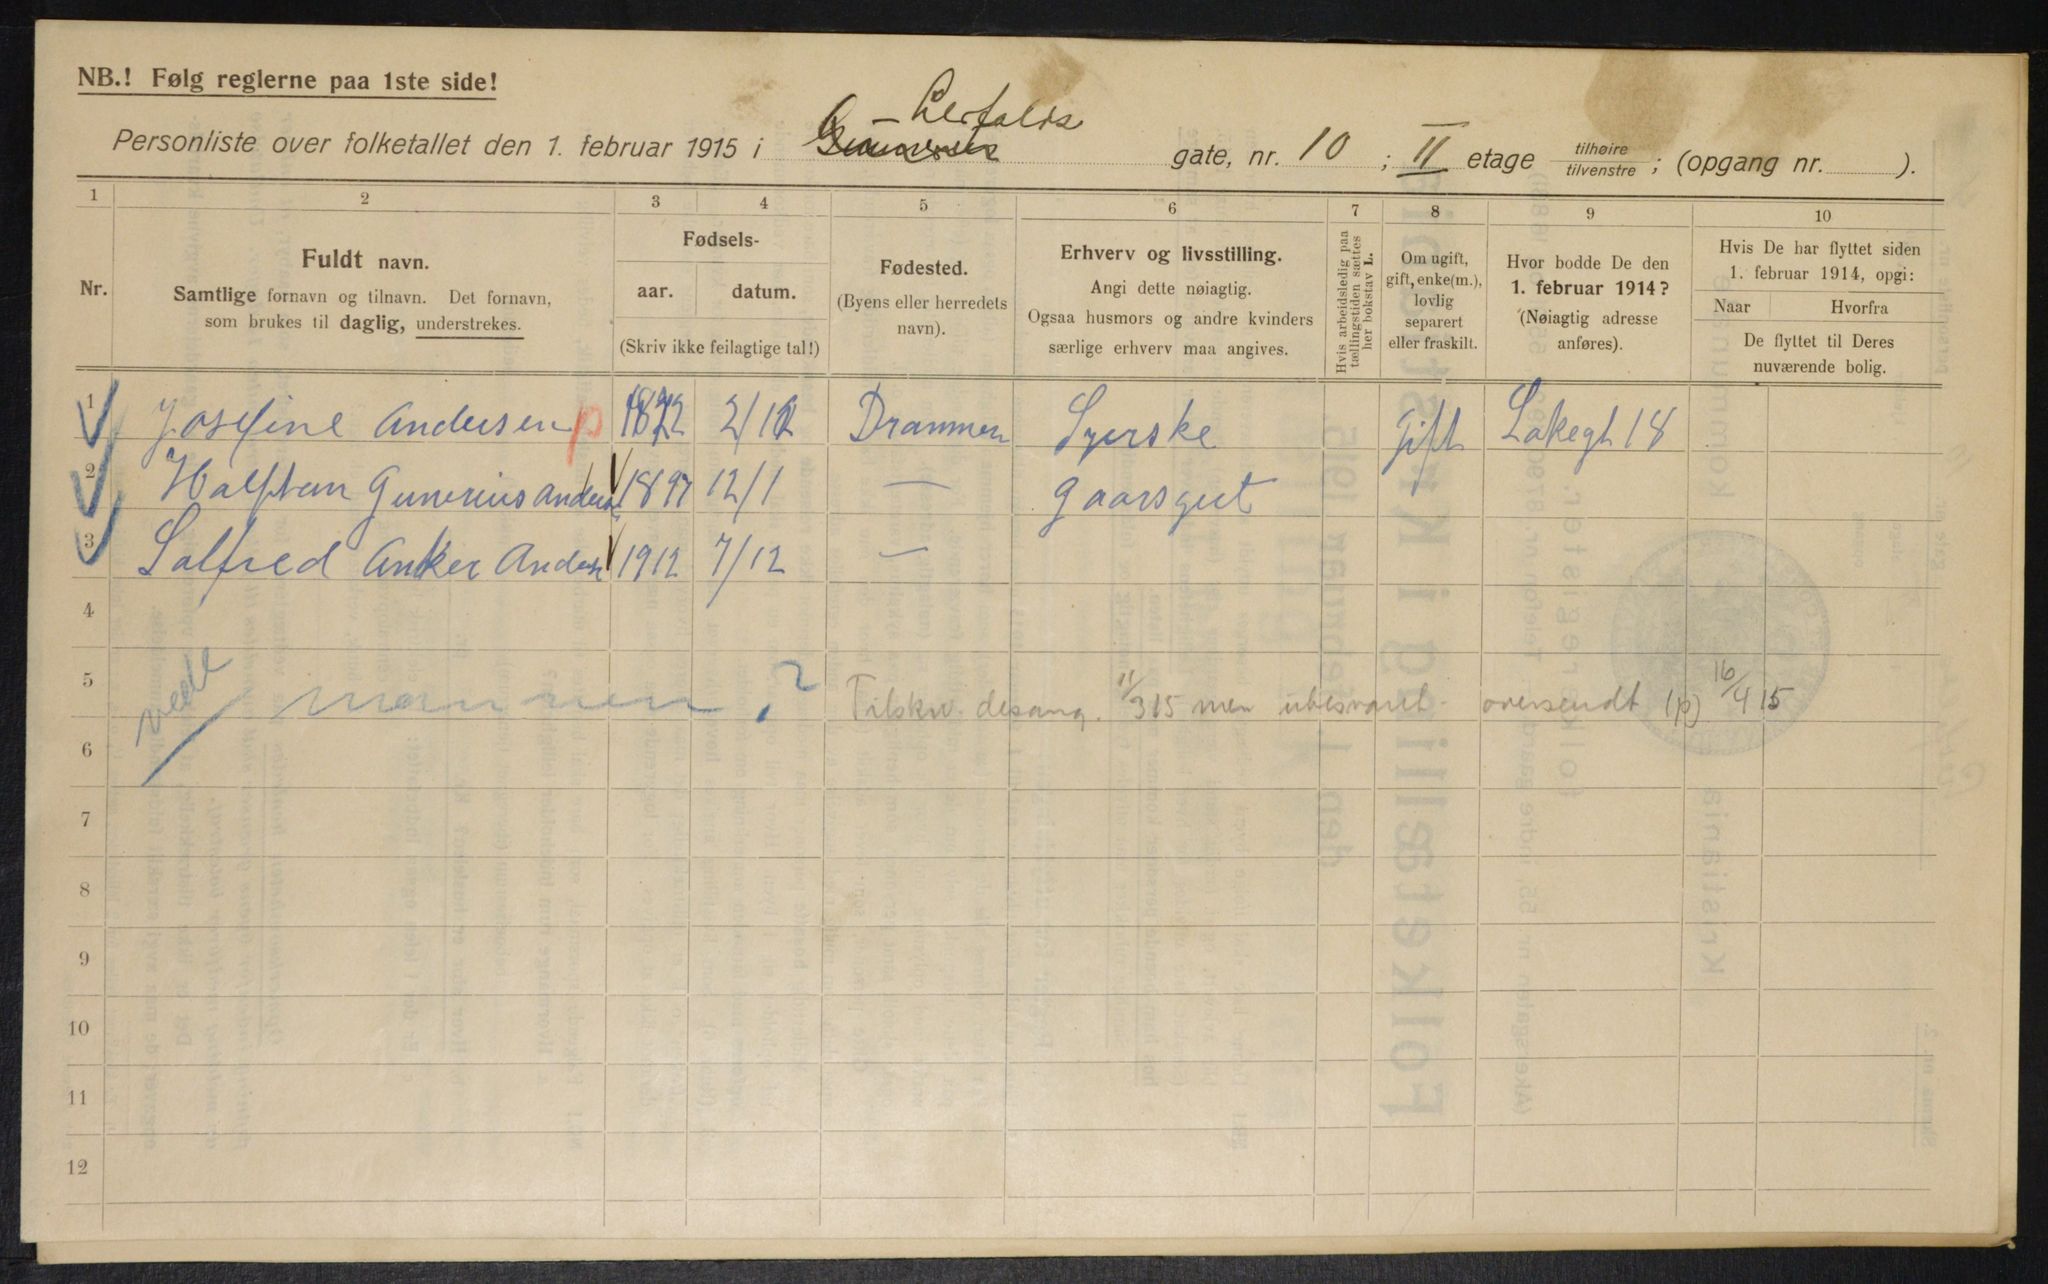 NB.! Følg reglerne paa 1ste side!
Lerfalds
Personliste over folketallet den 1. februar 1915 i Gunnerius gate, nr. 10 ; II etage tilhøire tilvenstre ; (opgang nr. ).
1 2 3 4 5 6 7 8 9 10
Nr.
Fuldt navn.
Samtlige fornavn og tilnavn. Det fornavn,
som brukes til daglig, understrekes.
Fødsels-
aar. datum.
(Skriv ikke feilagtige tal!)
Fødested.
(Byens eller herredets
navn).
Erhverv og livsstilling.
Angi dette nøiagtig.
Ogsaa husmors og andre kvinders
særlige erhverv maa angives.
Hvis arbeidsledig paa
tællingstiden sættes
her bokstav L.
Om ugift,
gift, enke(m.),
lovlig
separert
eller fraskilt.
Hvor bodde De den
1. februar 1914?
(Nøiagtig adresse
anføres).
Hvis De har flyttet siden
1. februar 1914, opgi:
Naar Hvorfra
De flyttet til Deres
nuværende bolig.
1 Josefine Andersen p 1872 2/12 Drammen Syerske Gift Lakegt 18
2 Halfdan Gunerius Anders 1897 12/1 — Gaarsgut
3 Salfred Anker Anders 1912 7/12 —
4
5 mannen ? Tilskr. desang. 11/3 15 men ubesvaret oversendt (p) 16/4 15
6
7
8
9
10
11
12